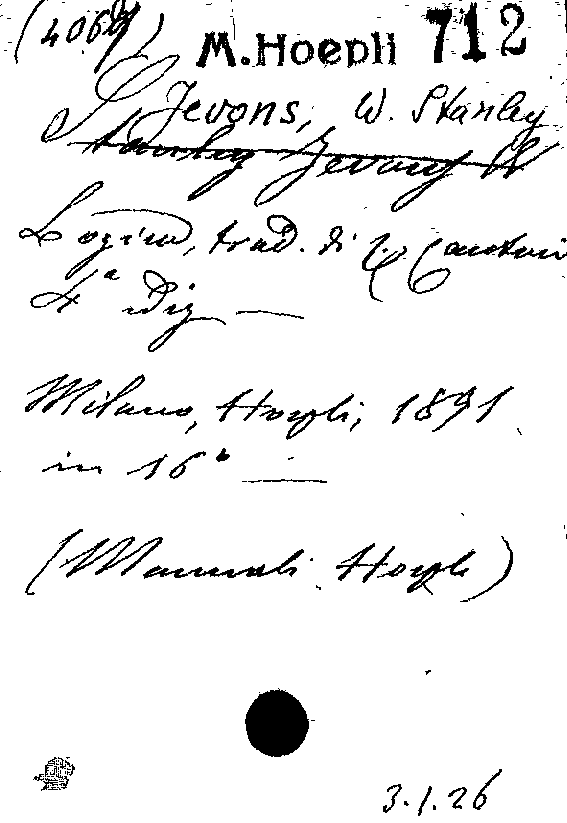 M. Hoepli 712
Jevons, W. Stanley
Stanley Jevons W
Logica, trad. di C. Cantoni
4ª Ediz
Milano, Hoepli, 1891
in 16°
(Manuali Hoepli)
3.1.26